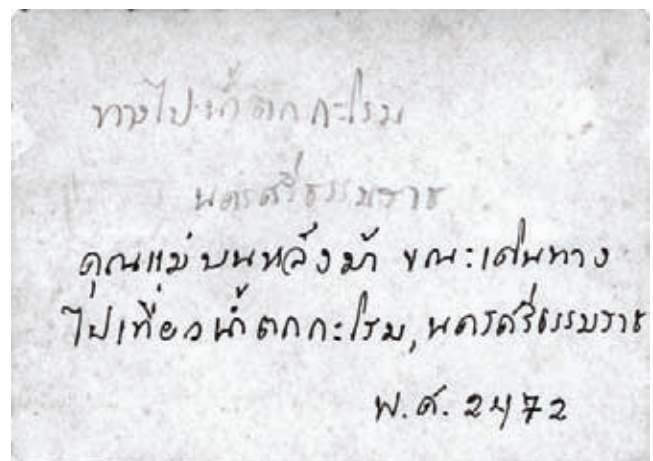 ทางไปน้ำตกกะโรม
นครศรีธรรมราช
คุณแม่บนหลังม้า ขณะเดินทาง
ไปเที่ยวน้ำตกกะโรม, นครศรีธรรมราช
พ.ศ. 2472